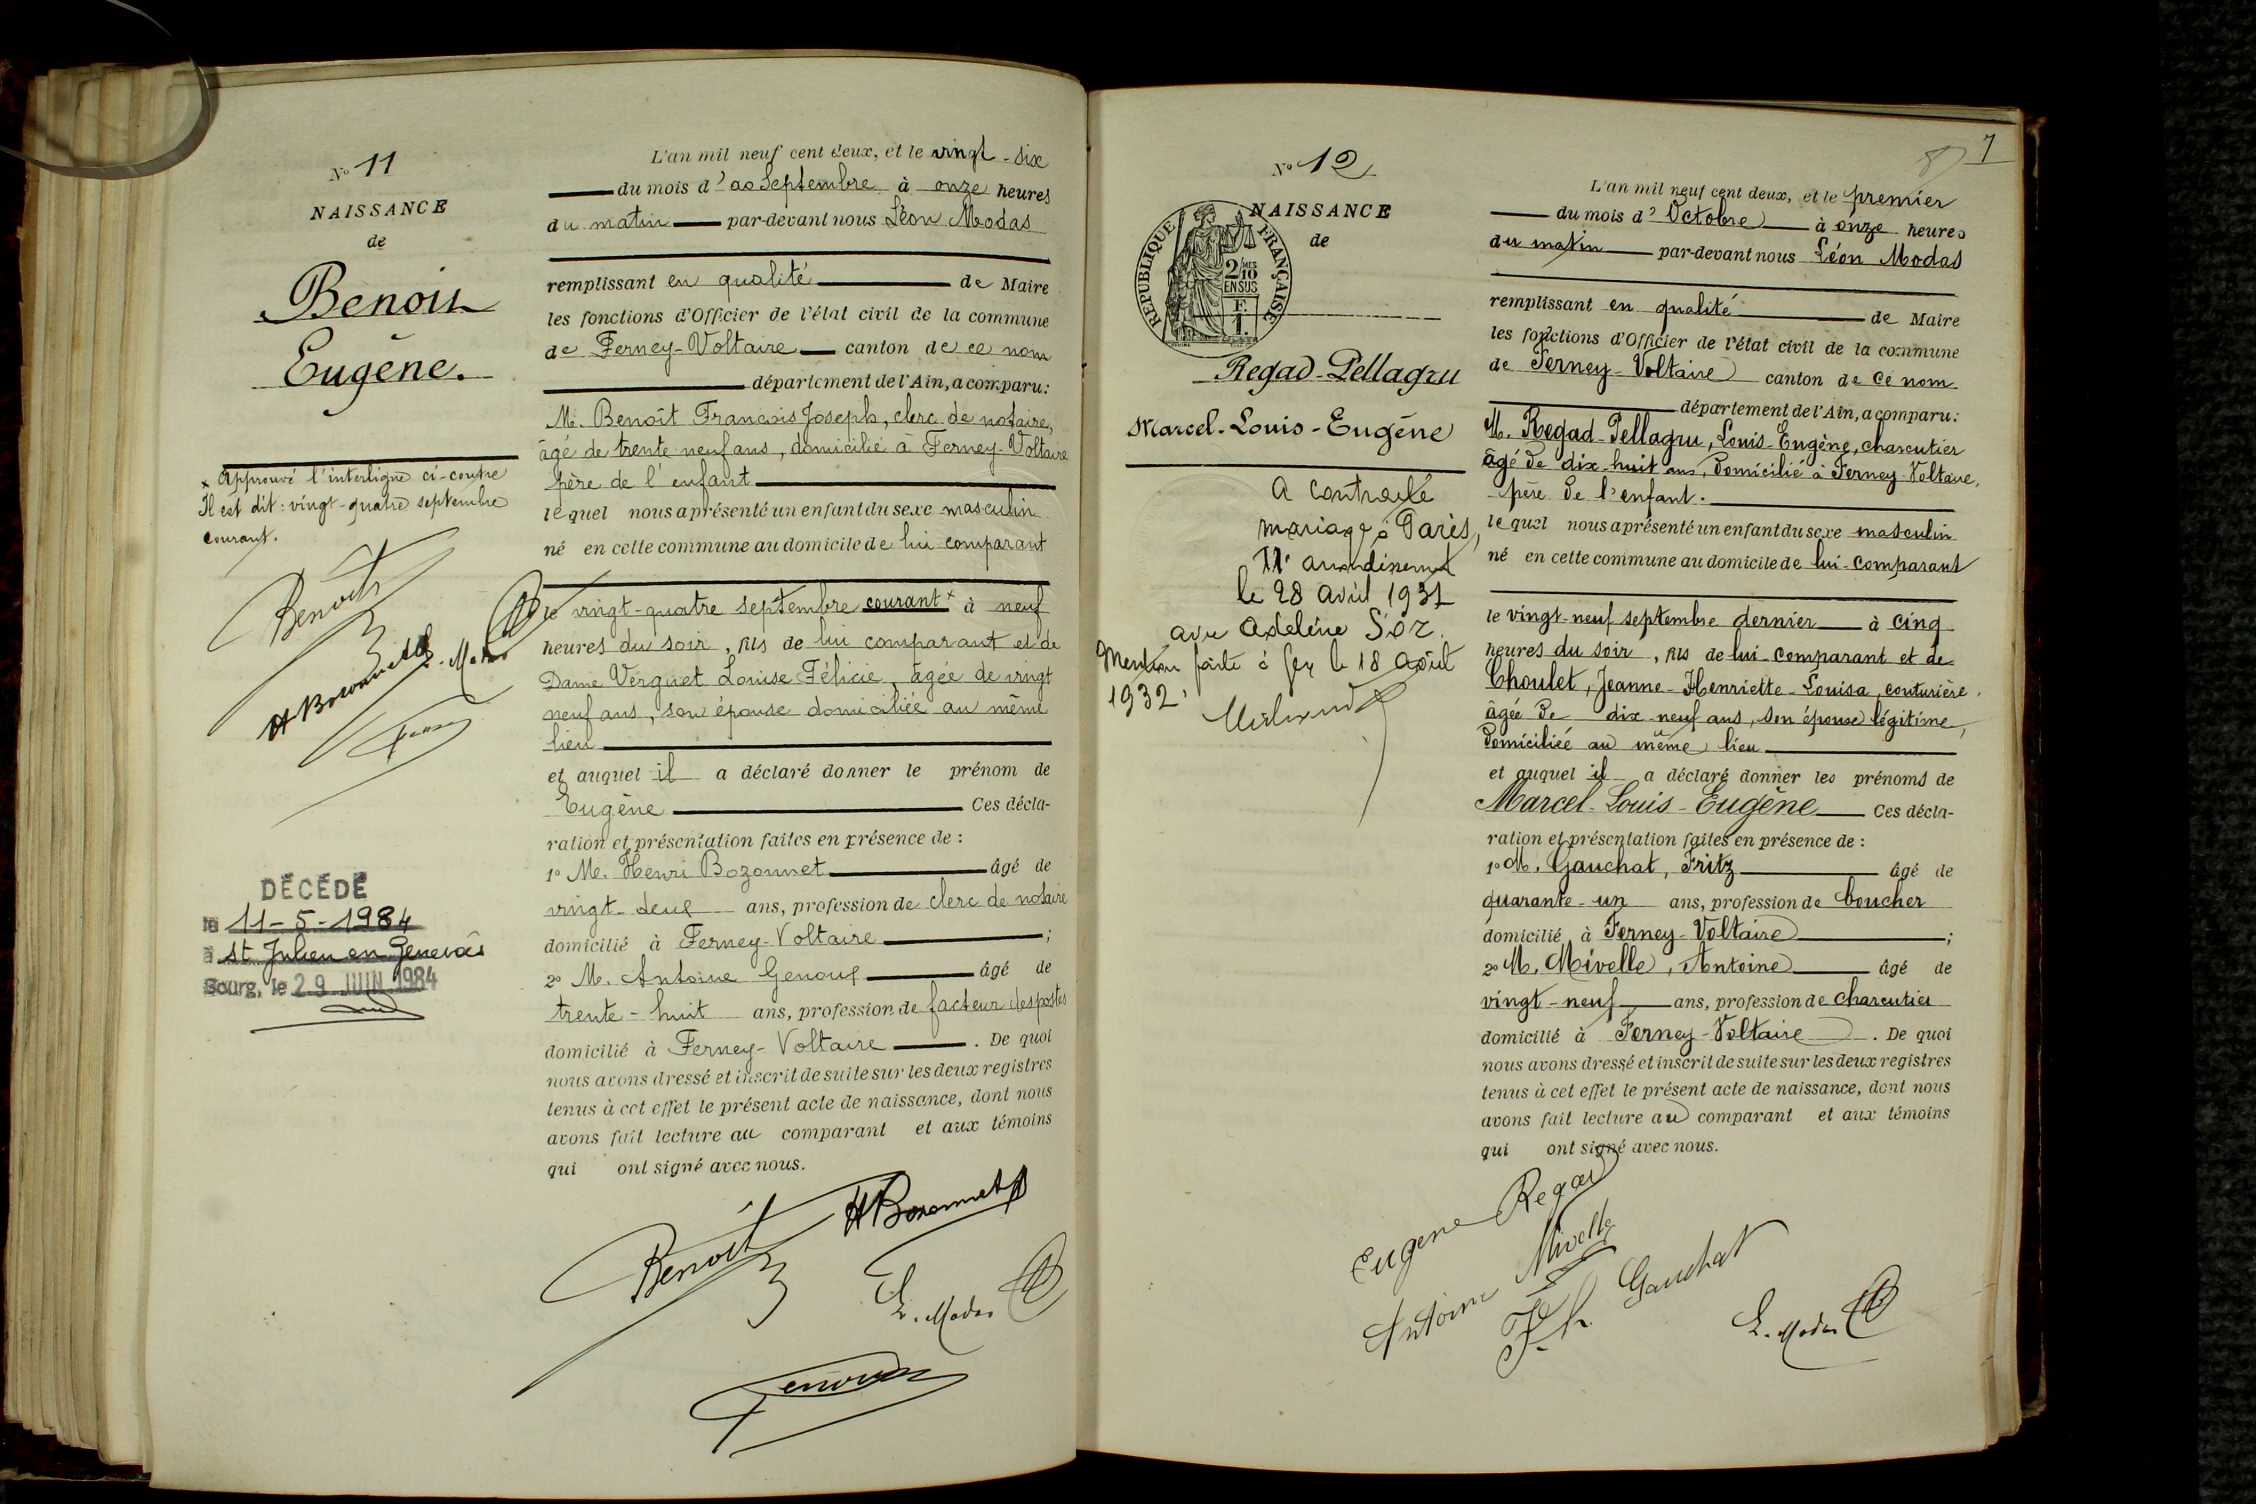 No 11
NAISSANCE
de
Benoit
Eugène.
x Approuvé l'interligne ci-contre
Il est dit : vingt-quatre septembre
courant.
Benoit
H Bozonnet
L. Modas
DÉCÉDÉ
le 11-5-1984
à St Julien en Genevois
Bourg, le 29 JUIN 1984
L'an mil neuf cent deux, et le vingt-six
du mois d' ao Septembre à onze heures
du matin par-devant nous Léon Modas
remplissant en qualité de Maire
les fonctions d'Officier de l'état civil de la commune
de Ferney-Voltaire canton de ce nom
département de l'Ain, a comparu :
M. Benoît François Joseph, clerc de notaire,
âgé de trente neuf ans, domicilié à Ferney-Voltaire
père de l'enfant
lequel nous a présenté un enfant du sexe masculin
né en cette commune au domicile de lui comparant
le vingt-quatre septembre courant x à neuf
heures du soir, fils de lui comparant et de
Dame Verguet Louise Félicie, âgée de vingt
neuf ans, son épouse domiciliée au même
lieu
et auquel il a déclaré donner le prénom de
Eugène Ces décla-
ration et présentation faites en présence de :
1o M. Henri Bozonnet âgé de
vingt-deux ans, profession de clerc de notaire
domicilié à Ferney-Voltaire ;
2o M. Antoine Genoux âgé de
trente-huit ans, profession de facteur des postes
domicilié à Ferney-Voltaire . De quoi
nous avons dressé et inscrit de suite sur les deux registres
tenus à cet effet le présent acte de naissance, dont nous
avons fait lecture au comparant et aux témoins
qui ont signé avec nous.
Benoit
H Bozonnet
L. Modas
Genoux
7
No 12
NAISSANCE
de
RÉPUBLIQUE FRANÇAISE
2/10 MES
EN SUS
F.
1.
Regad-Pellagru
Marcel-Louis-Eugène
a contracté
mariage à Paris,
11e arrondissement
le 28 avril 1931
avec Adeleine
Mention faite à Gex le 18 août
1932
L'an mil neuf cent deux, et le premier
du mois d' Octobre à onze heures
du matin par-devant nous Léon Modas
remplissant en qualité de Maire
les fonctions d'Officier de l'état civil de la commune
de Ferney-Voltaire canton de ce nom
département de l'Ain, a comparu :
M. Regad-Pellagru, Louis-Eugène, charcutier
âgé de dix-huit ans, domicilié à Ferney-Voltaire,
père de l'enfant.
lequel nous a présenté un enfant du sexe masculin
né en cette commune au domicile de lui-comparant
le vingt-neuf septembre dernier à cinq
heures du soir, fils de lui-comparant et de
Choulet, Jeanne-Henriette-Louisa, couturière,
âgée de dix-neuf ans, son épouse légitime,
domiciliée au même lieu
et auquel il a déclaré donner les prénoms de
Marcel-Louis-Eugène Ces décla-
ration et présentation faites en présence de :
1o M. Gauchat, Fritz âgé de
quarante-un ans, profession de boucher
domicilié à Ferney-Voltaire ;
2o M. Mivelle, Antoine âgé de
vingt-neuf ans, profession de charcutier
domicilié à Ferney-Voltaire . De quoi
nous avons dressé et inscrit de suite sur les deux registres
tenus à cet effet le présent acte de naissance, dont nous
avons fait lecture au comparant et aux témoins
qui ont signé avec nous.
Eugene Regad
Antoine Mivelle
Gauchat
L. Modas